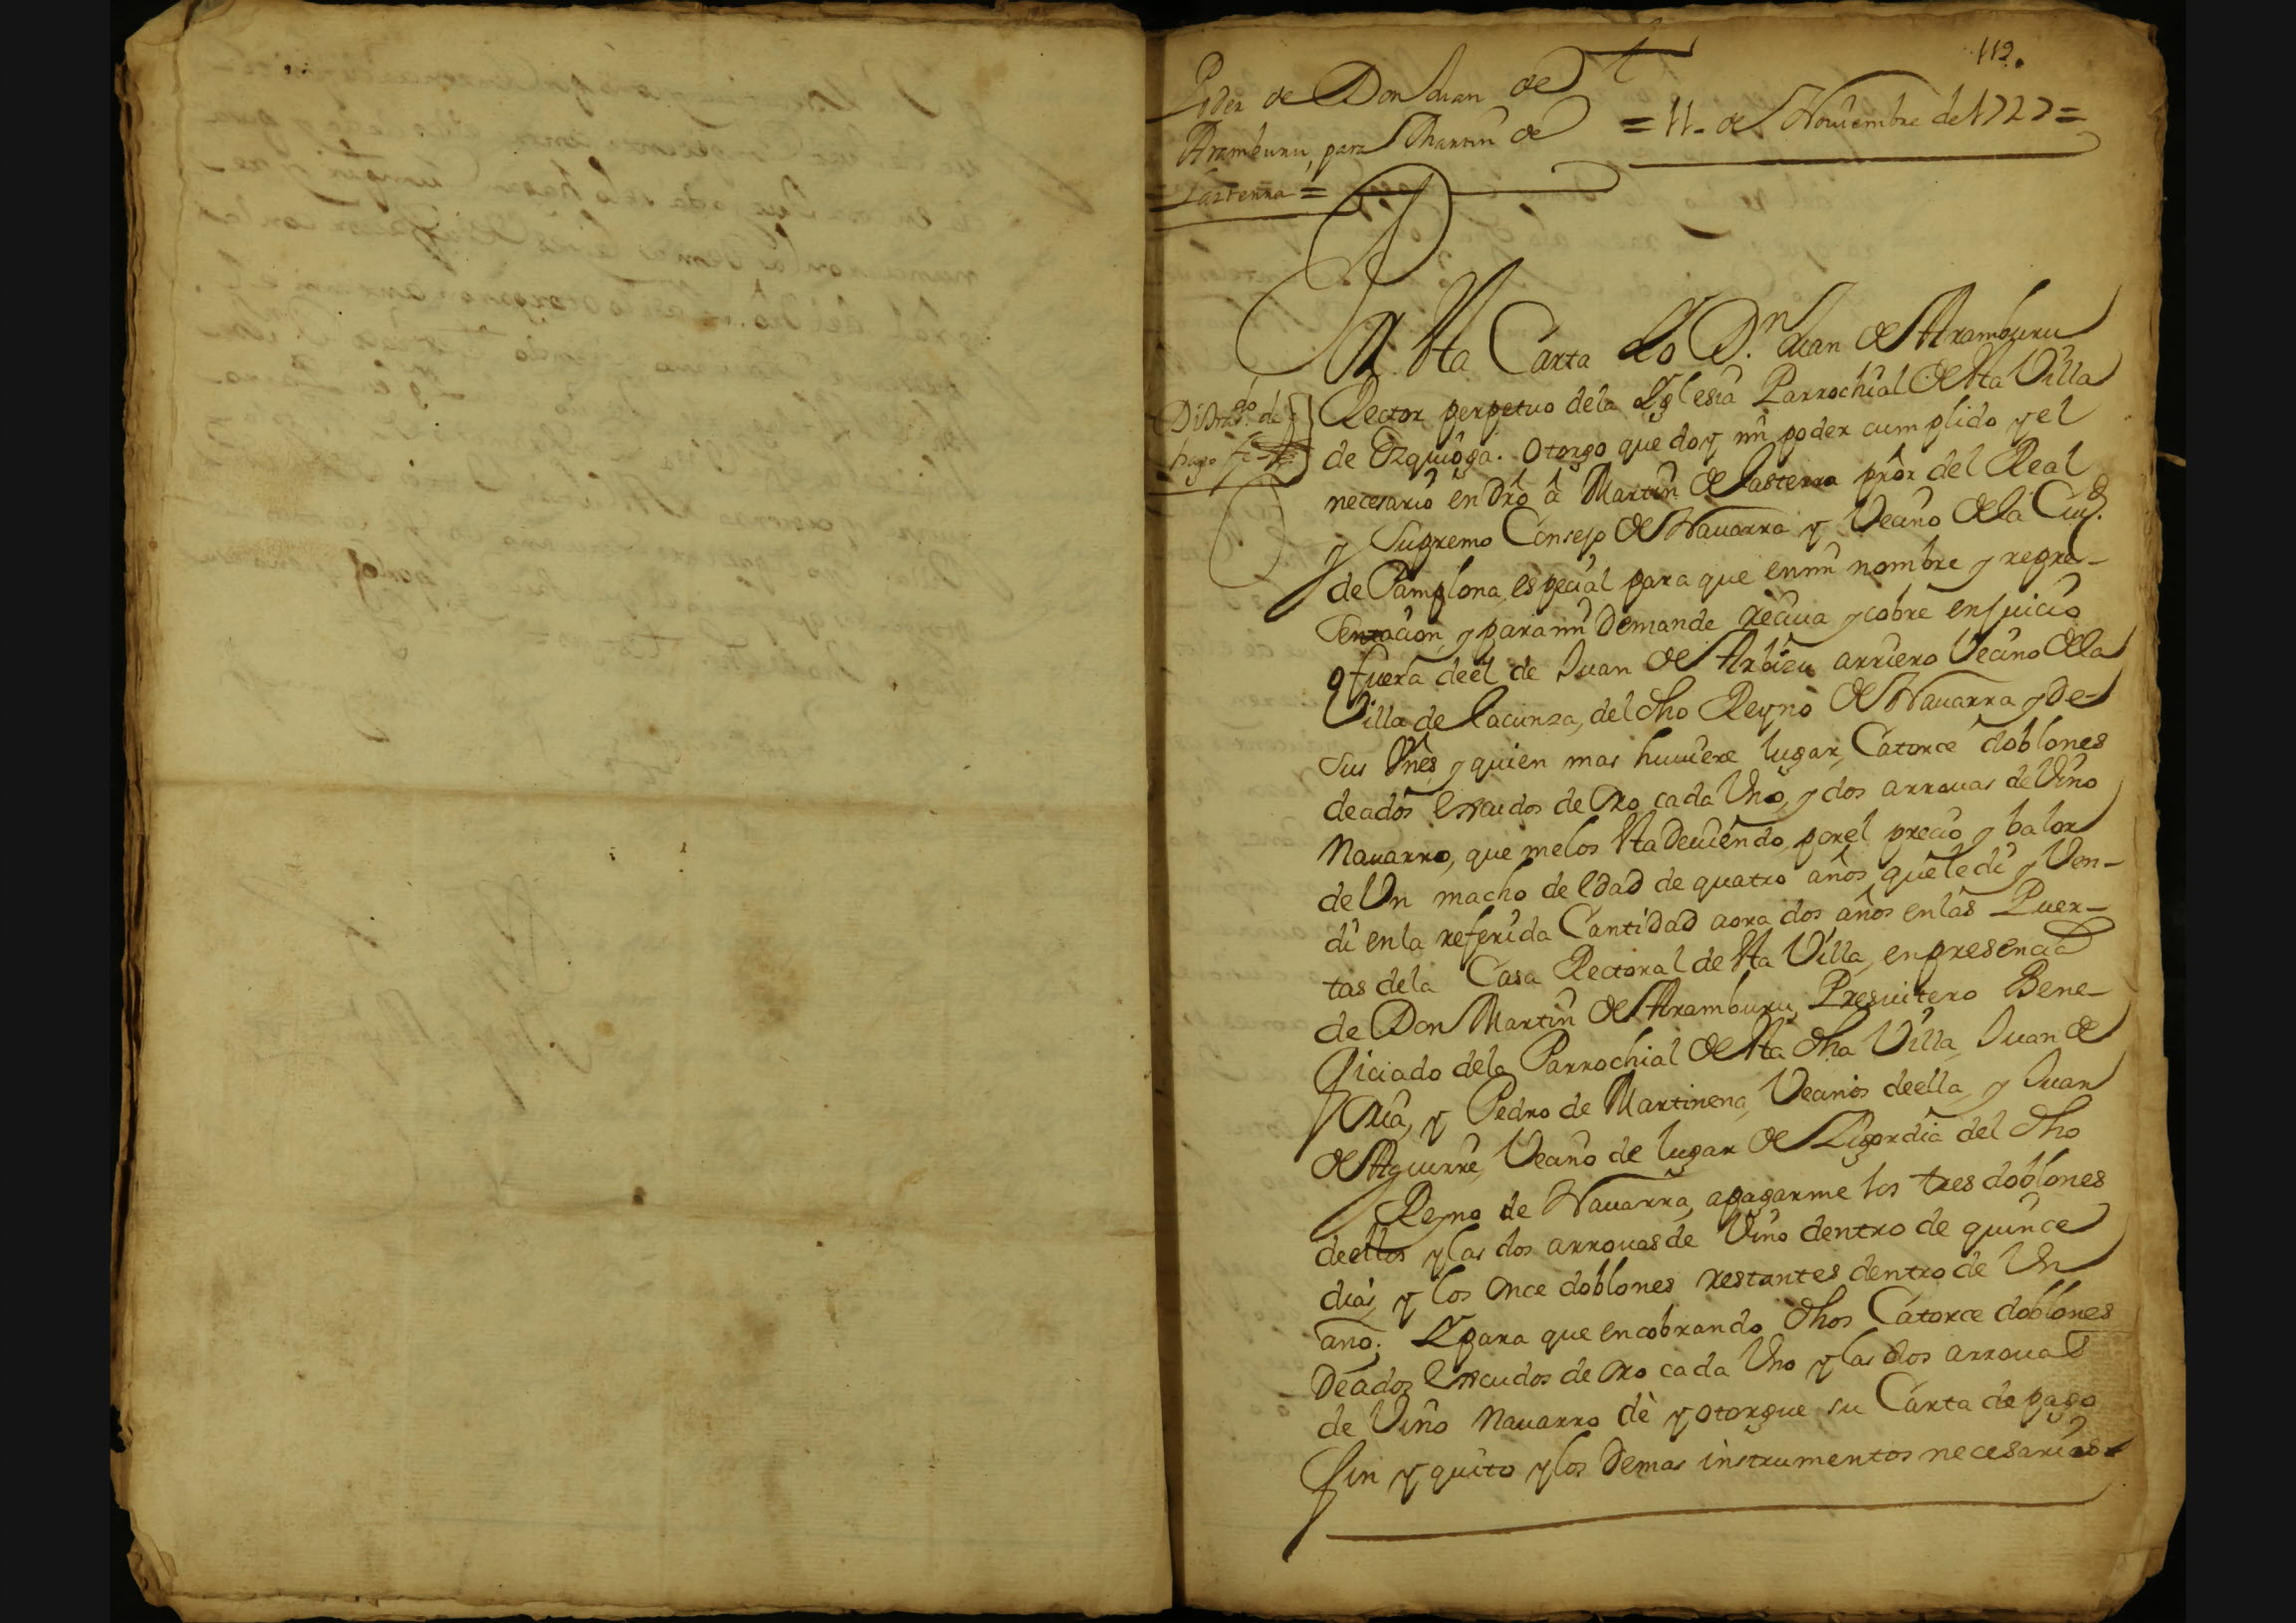 112.
Poder de Don Juan de
Aramburu, para Martin de
= Lasterra =
= 11 - de Nouiembre de 1727 =
En Esta Carta Yo D.n Juan de Aramburu
Rector perpetuo dela Yglesia Parrochial de Esta Villa
de Ezquioga. Otorgo que doy mi poder cumplido y el
necesario en dro â Martin de Lasterra prôr del Real
y Supremo Consejo de Nauarra y Vecino dela Ciud.
de Pamplona, especial para que en mi nombre y repre-
sentacion, y para mi Demande reciua y cobre en juicio
o fuera deel de Juan de Arbieu arriero Vecino dela
Villa de Lacunza, del dho Reyno de Nauarra y De
sus Vnes, y quien mas huuiere lugar, Catorce doblones
deados Escudos de Oro cada Vno, y dos arrouas de Vino
Nauarro, que melos Esta Deuiendo, por el precio y balor
de Vn macho de Edad de quatro años que le di y Ven-
di en la referida Cantidad aora dos años en las Puer-
tas dela Casa Rectoral de Esta Villa, en presencia
de Don Martin de Aramburu, Presuitero Bene-
ficiado dela Parrochial de Esta dha Villa, Juan de
Oria, y Pedro de Martinena, Vecinos deella, y Juan
de Aguirre, Vecino de lugar de Ligordia del dho
Reyno de Nauarra, apagarme los tres doblones
deellos y las dos arrouas de Vino dentro de quince
dias, y los once doblones restantes dentro de Vn
año. Y para que en cobrando dhos Catorce doblones
Deados Escudos de Oro cada Vno y las dos arrouas
de Vino Nauarro dè y otorgue su Carta de pago
fin y quito y los Demas instrumentos necesarios